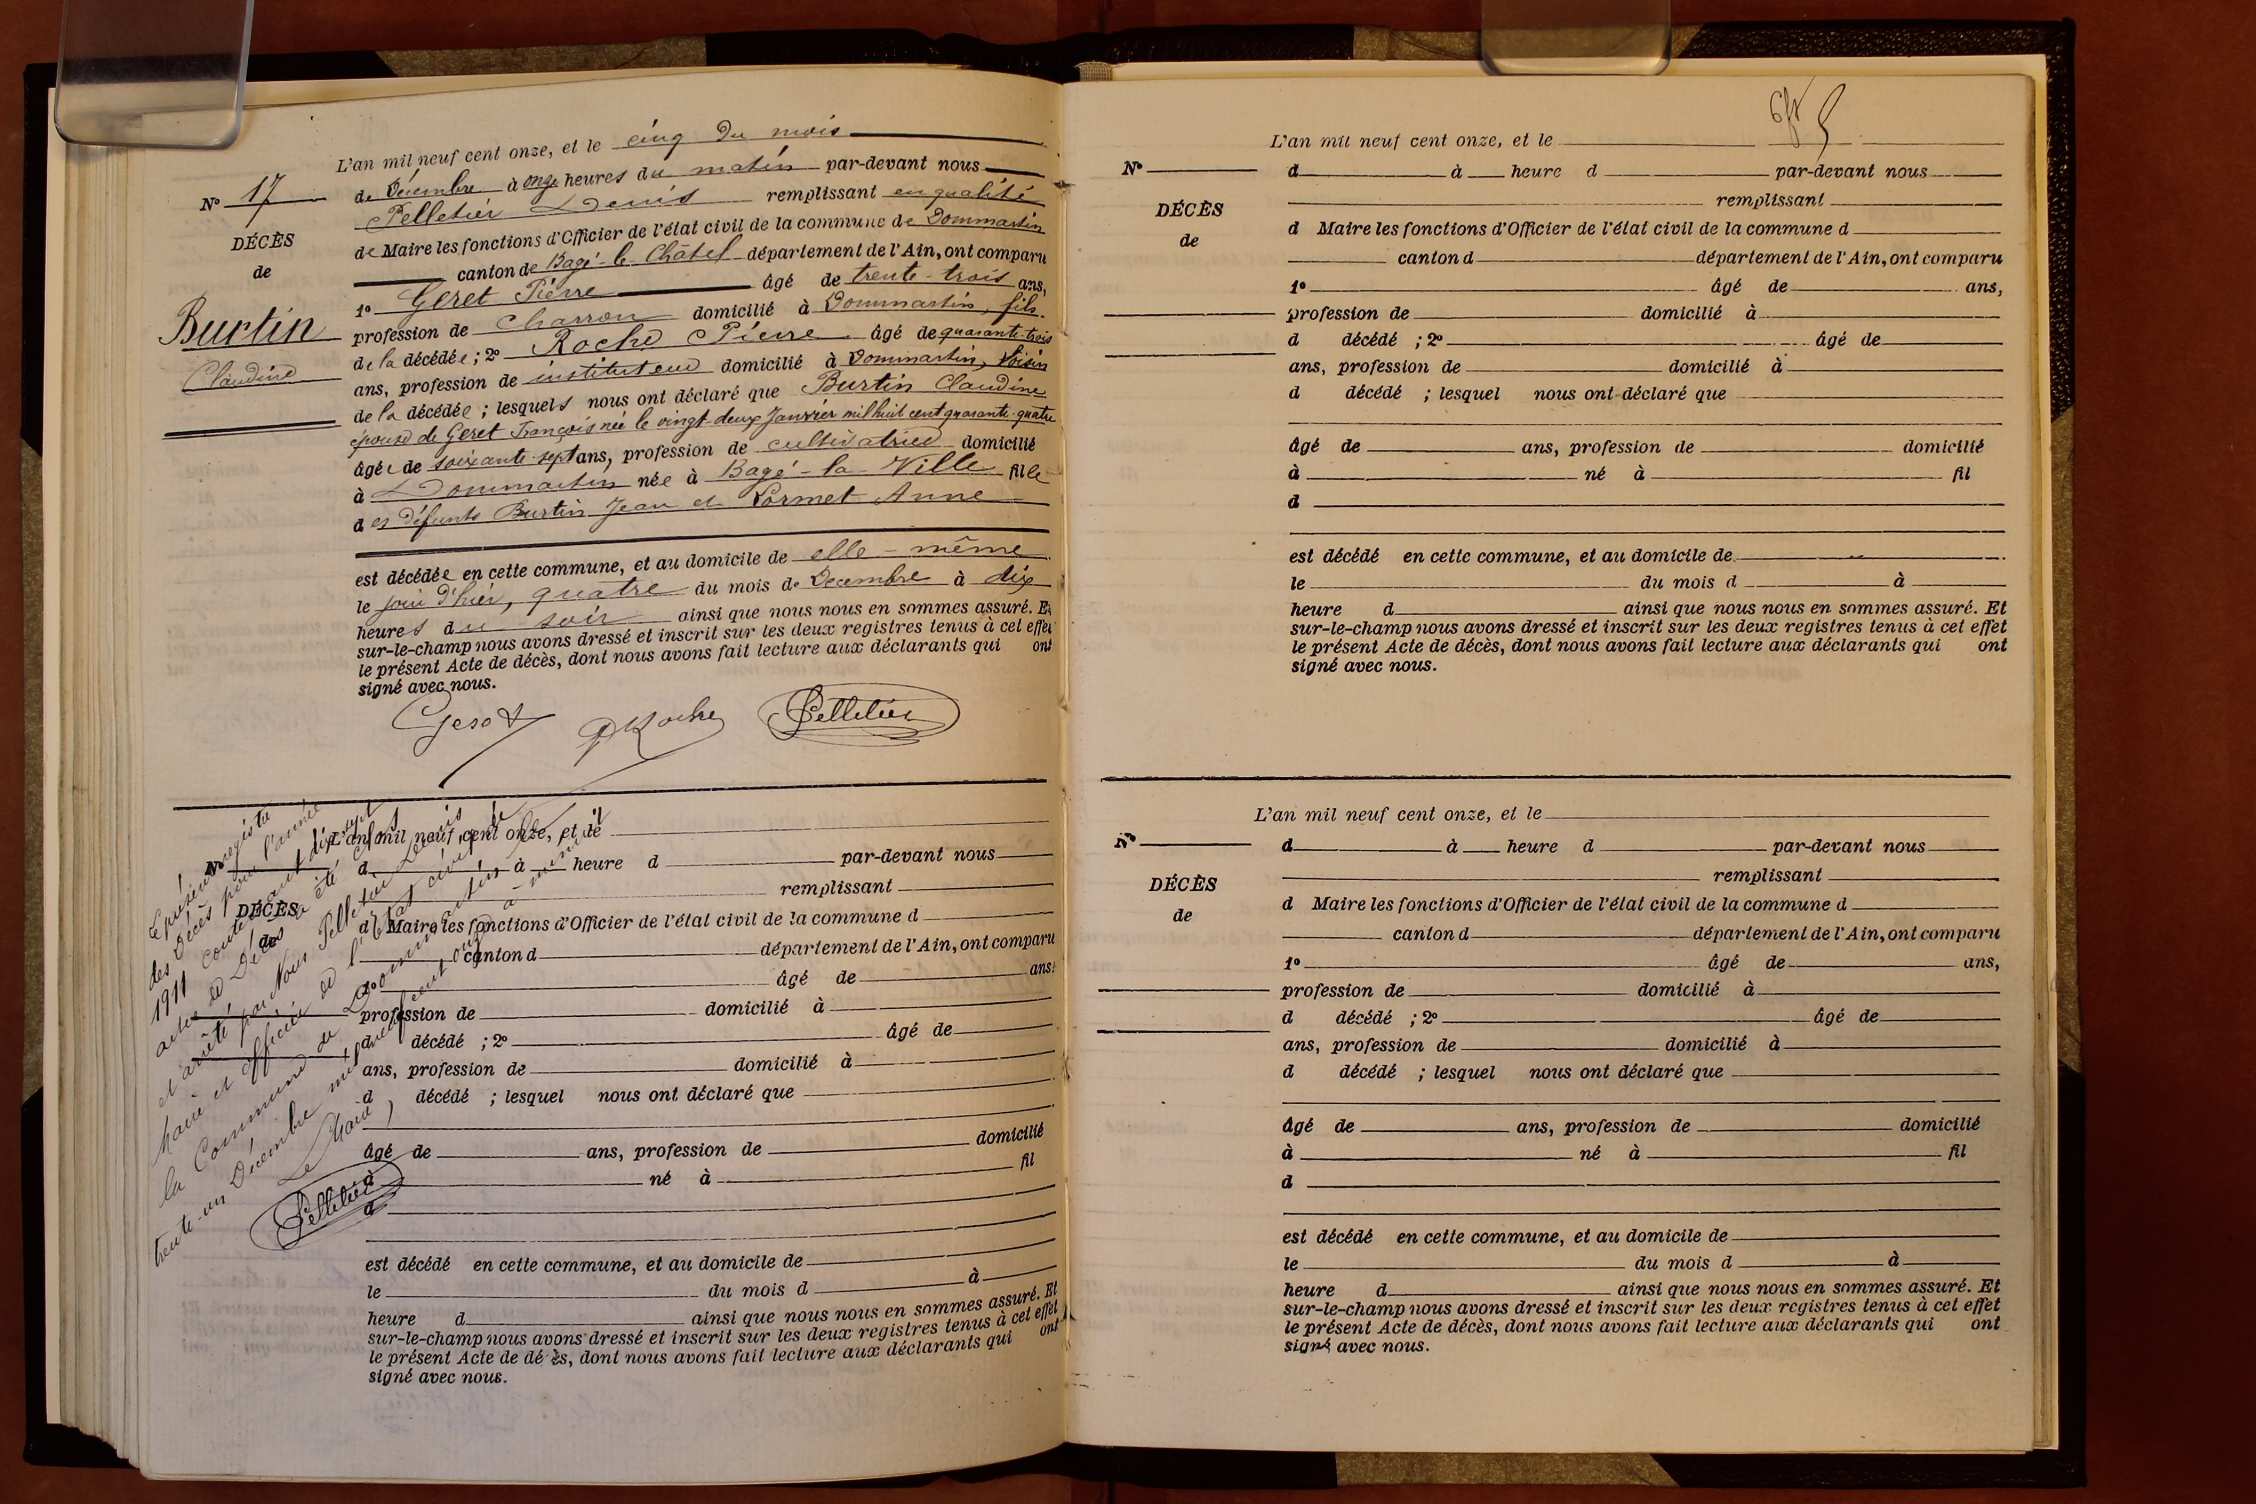 L'an mil neuf cent onze, et le cinq du mois
de Décembre à onze heures du matin par-devant nous
Pelletier Denis remplissant en qualité
de Maire les fonctions d'Officier de l'état civil de la commune de Dommartin
canton de Bagé-le-Châtel département de l'Ain, ont comparu
1º Geret Pierre âgé de trente-trois ans,
profession de charron domicilié à Dommartin, fils
de la décédée ; 2º Roche Pierre âgé de quarante-trois
ans, profession de instituteur domicilié à Dommartin, voisin
de la décédée ; lesquels nous ont déclaré que Burtin Claudine
épouse de Geret François née le vingt-deux Janvier mil huit cent quarante-quatre
âgée de soixante-sept ans, profession de cultivatrice domicilié
à Dommartin née à Bagé-la-Ville fille
des défunts Burtin Jean et Lormet Anne
est décédée en cette commune, et au domicile de elle-même
le jour d'hier, quatre du mois de Décembre à dix
heures du soir ainsi que nous nous en sommes assuré. Et
sur-le-champ nous avons dressé et inscrit sur les deux registres tenus à cet effet
le présent Acte de décès, dont nous avons fait lecture aux déclarants qui ont
signé avec nous.
Nº 17
DÉCÈS
de
Burtin
Claudine
Geret PRoche Pelletier
L'an mil neuf cent onze, et le
d à heure d par-devant nous
remplissant
d Maire les fonctions d'Officier de l'état civil de la commune d
canton d département de l'Ain, ont comparu
1º âgé de ans,
profession de domicilié à
d décédé ; 2º âgé de
ans, profession de domicilié à
d décédé ; lesquel nous ont déclaré que
âgé de ans, profession de domicilié
à né à fil
d
est décédé en cette commune, et au domicile de
le du mois d à
heure d ainsi que nous nous en sommes assuré. Et
sur-le-champ nous avons dressé et inscrit sur les deux registres tenus à cet effet
le présent Acte de décès, dont nous avons fait lecture aux déclarants qui ont
signé avec nous.
Nº
DÉCÈS
de
Le présent registre
des Décès pour l'année
1911 contenant dix-sept
actes de Décès a été clos
et arrêté par Nous Pelletier Denis
Maire et Officier de l'Etat civil de
la Commune de Dommartin le
trente-un Décembre mil neuf cent onze à minuit
Le Maire,
Pelletier
L'an mil neuf cent onze, et le
d à heure d par-devant nous
remplissant
d Maire les fonctions d'Officier de l'état civil de la commune d
canton d département de l'Ain, ont comparu
1º âgé de ans,
profession de domicilié à
d décédé ; 2º âgé de
ans, profession de domicilié à
d décédé ; lesquel nous ont déclaré que
âgé de ans, profession de domicilié
à né à fil
d
est décédé en cette commune, et au domicile de
le du mois d à
heure d ainsi que nous nous en sommes assuré. Et
sur-le-champ nous avons dressé et inscrit sur les deux registres tenus à cet effet
le présent Acte de décès, dont nous avons fait lecture aux déclarants qui ont
signé avec nous.
Nº
DÉCÈS
de
L'an mil neuf cent onze, et le
d à heure d par-devant nous
remplissant
d Maire les fonctions d'Officier de l'état civil de la commune d
canton d département de l'Ain, ont comparu
1º âgé de ans,
profession de domicilié à
d décédé ; 2º âgé de
ans, profession de domicilié à
d décédé ; lesquel nous ont déclaré que
âgé de ans, profession de domicilié
à né à fil
d
est décédé en cette commune, et au domicile de
le du mois d à
heure d ainsi que nous nous en sommes assuré. Et
sur-le-champ nous avons dressé et inscrit sur les deux registres tenus à cet effet
le présent Acte de décès, dont nous avons fait lecture aux déclarants qui ont
signé avec nous.
Nº
DÉCÈS
de